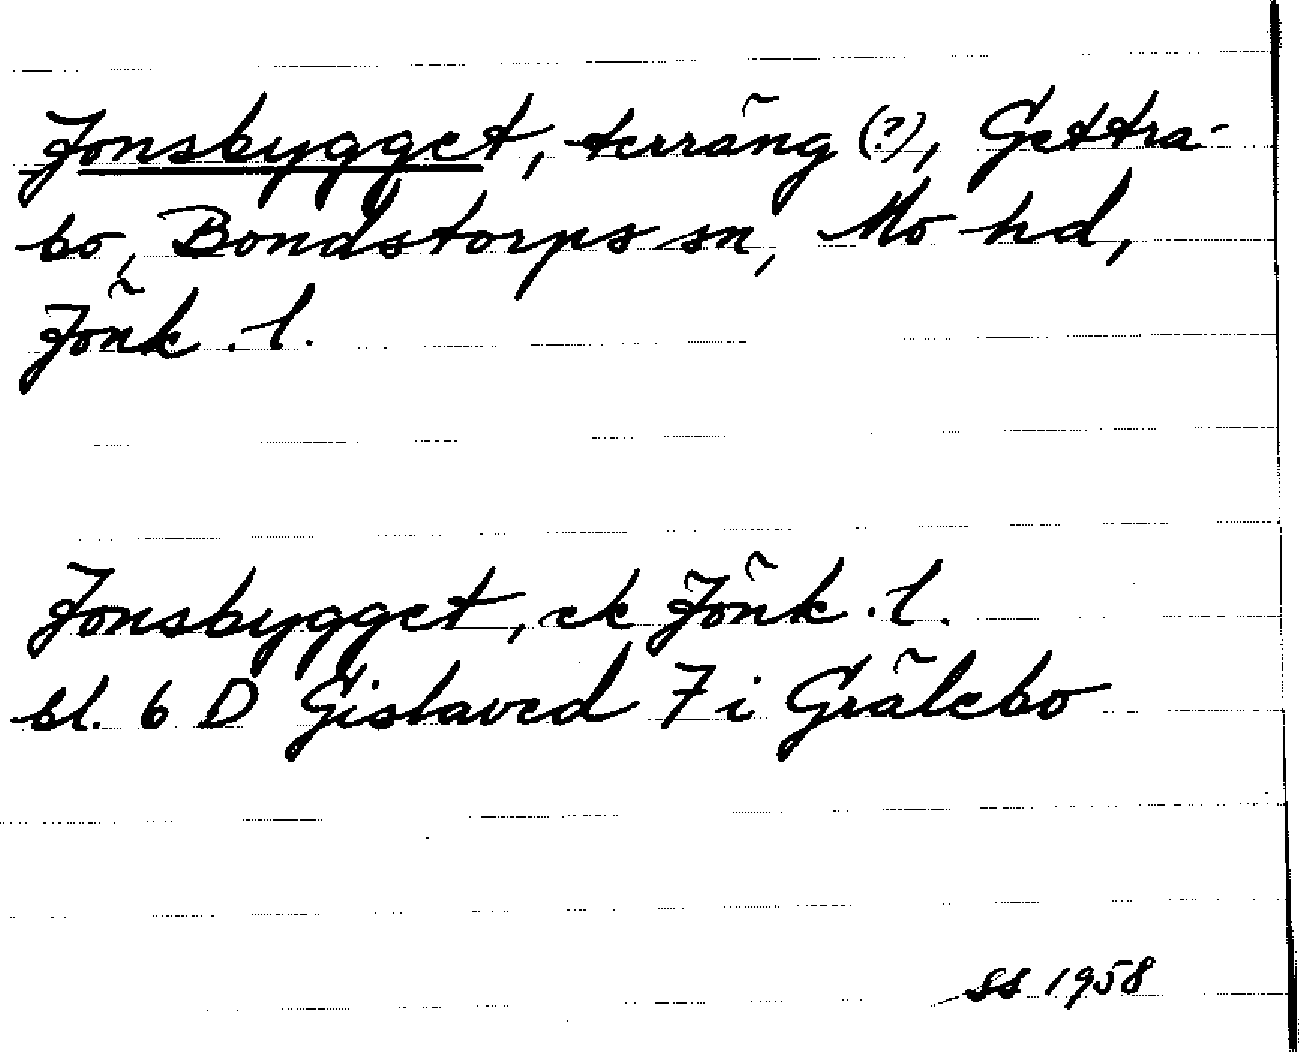 Jonsbygget, terräng (?), Gettra-
bo, Bondstorps sn, Mo hd,
Jönk. l.
Jonsbygget, ek Jönk. l.
bl. 6 D Gislaved 7 i Grälebo
SS 1958